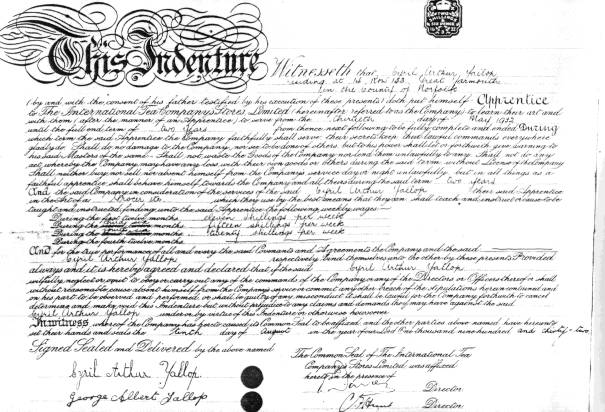 This Indenture Witnesseth that Cyril Arthur Yallop
residing at 14 Row 133 Great Yarmouth
in the County of Norfolk
(by and with the consent of his father testified by his execution of these presents) doth put himself Apprentice
to The International Tea Company's Stores Limited (hereinafter referred to as the Company) to learn their art and
with them (after the manner of an Apprentice) to serve from the thirtieth day of May 1932
until the full end term of two years from thence next following to be fully complete and ended During
which term the said Apprentice the Company faithfully shall serve their secrets keep their lawful commands everywhere
gladly do Shall do no damage to the Company nor to be done of others but to his power shall let or forthwith give warning to
his said Masters of the same Shall not waste the Goods of the Company nor lend them unlawfully to any Shall not do any
act whereby the Company may have any loss with their own goods or others during the said term without licence of the Company
Shall neither buy nor sell nor absent himself from the Company's service day or night unlawfully but in all things as a
faithful apprentice shall behave himself towards the Company and all theirs during the said term two years
And the said Company in consideration of the services of the said Cyril Arthur Yallop their said Apprentice
in the Art of a Grocer etc. which they use by the best means that they can shall teach and instruct or cause to be
taught and instructed finding unto the said Apprentice the following weekly wages
During the first six months eleven shillings per week
During the months fifteen shillings per week
During the months twenty shillings per week
During the fourth twelve months
And for the true performance of all and every the said Covenants and Agreements the Company and the said
Cyril Arthur Yallop respectively bind themselves unto the other by these presents Provided
always and it is hereby agreed and declared that if the said Cyril Arthur Yallop
wilfully neglect or omit to obey or carry out any of the commands of the Company or any of the Directors or Officers thereof or shall
without reasonable cause absent himself from the Company's service or commit any other breach of the stipulations herein contained and
on his part to be observed and performed or shall be guilty of any misconduct it shall be lawful for the Company forthwith to cancel
determine and modify this Indenture but without prejudice to any claims and demands they may have against the said
Cyril Arthur Yallop under or by virtue of this Indenture or otherwise howsoever
In witness whereof the Company has hereto caused its Common Seal to be affixed and the other parties above named have hereunto
set their hands and seals the Tenth day of August in the year of our Lord One thousand nine hundred and thirty-two.
Signed Sealed and Delivered by the above named
The Common Seal of The International Tea
Company's Stores Limited was affixed
hereto in the presence of
Cyril Arthur Yallop
Director
George Albert Yallop
Director